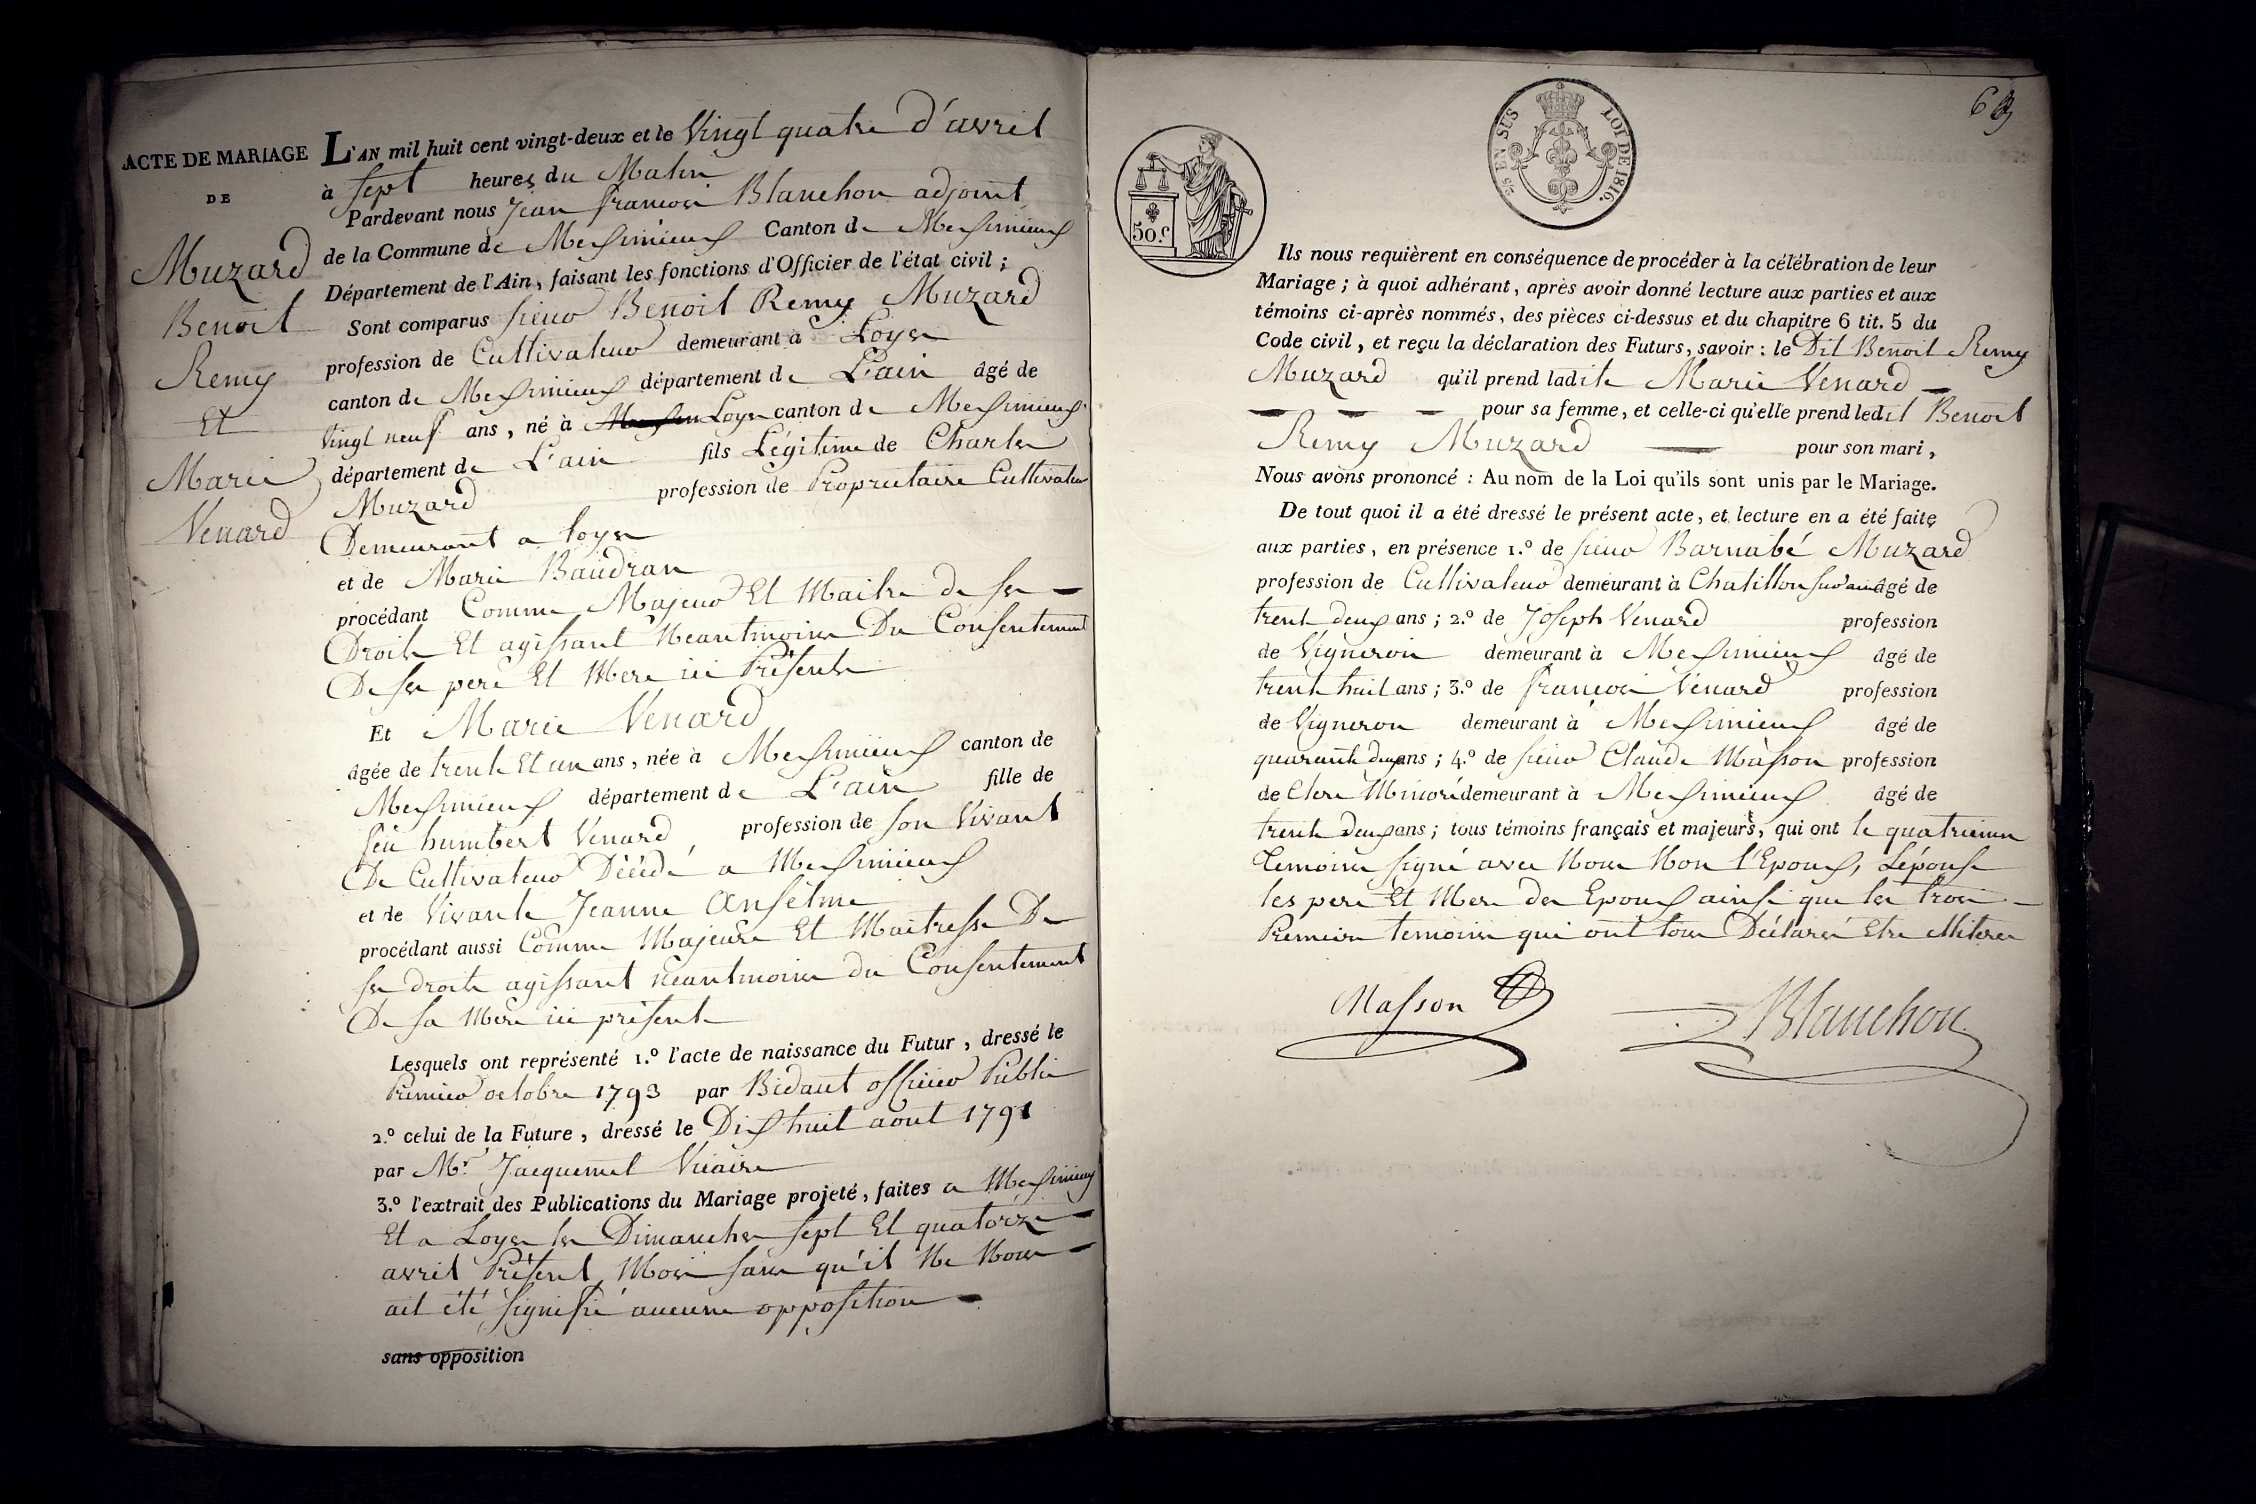 ACTE DE MARIAGE
DE
Muzard
Benoit
Remy
Et
Marie
Venard
L'AN mil huit cent vingt-deux et le Vingt quatre d'avril
à sept heures du Matin
Pardevant nous Jean françois Blanchon adjoint
de la Commune de Meximieux Canton de Meximieux
Département de l'Ain, faisant les fonctions d'Officier de l'état civil ;
Sont comparus sieur Benoit Remy Muzard
profession de Cultivateur demeurant à Loyes
canton de Meximieux département de L'ain âgé de
Vingt neuf ans, né à Loyes canton de Meximieux
département de L'ain fils Légitime de Charles
Muzard profession de Proprietaire Cultivateur
Demeurant a loyes
et de Marie Baudran
procédant Comme Majeur Et Maitre de ses
Droits Et agissant Neantmoins Du Consentement
De ses pere Et Mere ici Présents
Et Marie Venard
âgée de trente Et un ans, née à Meximieux canton de
Meximieux département de L'ain fille de
feu humbert Venard profession de son Vivant
De Cultivateur Décédé a Meximieux
et de Vivante Jeanne Anselme
procédant aussi Comme Majeure Et Maitresse De
ses droits agissant neantmoins du Consentement
De sa Mere ici présente
Lesquels ont représenté 1.º l'acte de naissance du Futur, dressé le
Premier octobre 1793 par Bidaut officier Public
2.º celui de la Future, dressé le Dix huit aout 1791
par Mr. Jacquemet Vicaire
3.º l'extrait des Publications du Mariage projeté, faites a Meximieux
Et a Loyes les Dimanches sept Et quatorze
avril Présent Mois sans qu'il Ne Nous
ait été signifié aucune opposition
sans opposition
69
50.c
5/s EN SUS LOI DE 1816.
Ils nous requièrent en conséquence de procéder à la célébration de leur
Mariage ; à quoi adhérant, après avoir donné lecture aux parties et aux
témoins ci-après nommés, des pièces ci-dessus et du chapitre 6 tit. 5 du
Code civil, et reçu la déclaration des Futurs, savoir : le Dit Benoit Remy
Muzard qu'il prend ladite Marie Venard
pour sa femme, et celle-ci qu'elle prend ledit Benoit
Remy Muzard pour son mari,
Nous avons prononcé : Au nom de la Loi qu'ils sont unis par le Mariage.
De tout quoi il a été dressé le présent acte, et lecture en a été faite
aux parties, en présence 1.º de sieur Barnabé Muzard
profession de Cultivateur demeurant à Chatillon sur ain âgé de
trente deux ans ; 2.º de Joseph Venard profession
de Vigneron demeurant à Meximieux âgé de
trente huit ans ; 3.º de françois Venard profession
de Vigneron demeurant à Meximieux âgé de
quarante deux ans ; 4.º de sieur Claude Masson profession
de Clerc Minoré demeurant à Meximieux âgé de
trente deux ans ; tous témoins français et majeurs, qui ont le quatrieme
temoins signé avec Nous Non l'Epoux, Lépouse
les pere Et Mere des Epoux ainsi que les trois
Premiers temoins qui ont tous Déclarés Etre illiterés
Masson
Blanchon